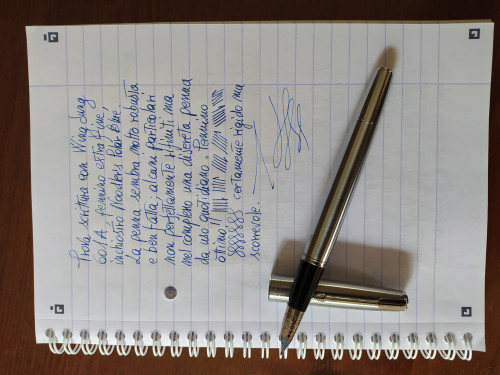 Prova scrittura con Wing Sung
601A, pennino extra fine,
inchiostro Noodlers Polar Blue,
La penna sembra molto robusta
e ben fatta, alcuni particolari
non perfettamente rifiniti ma
nel complesso una discreta penna
da uso quotidiano. Pennino
ottimo!!
certamente rigido ma
scorrevole.